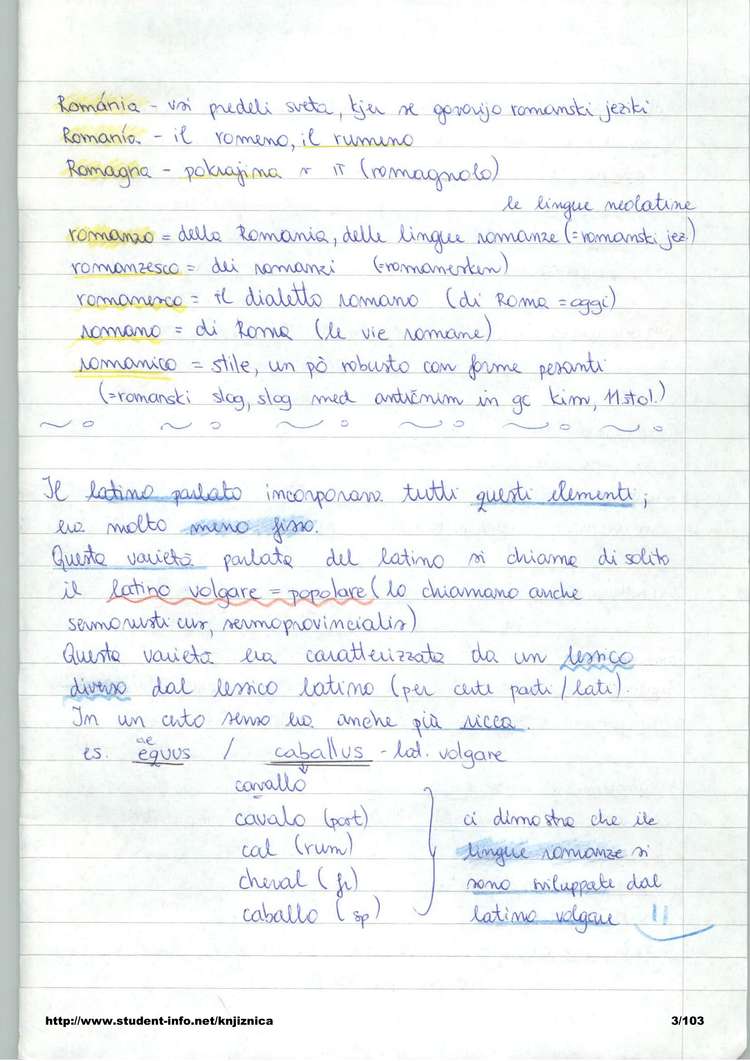 Románia - vsi predeli sveta, kjer se govorijo romanski jeziki
Romanía - il romeno, il rumeno
Romagna - pokrajina v IT (romagnolo)
le lingue neolatine
romanzo = della Romania, delle lingue romanze (=romanski jez.)
romanzesco = dei romanzi (=romanesken)
romanesco = il dialetto romano (di Roma = oggi)
romano = di Roma (le vie romane)
romanico = stile, un pò robusto con forme pesanti
(=romanski slog, slog med antičnim in go kim, 11.stol.)
Il latino parlato incorporava tutti questi elementi;
era molto meno fisso.
Questa varietà parlata del latino si chiama di solito
il latino volgare = popolare (lo chiamano anche
sermo rusticus, sermo provincialis)
Questa varietà era caratterizzata da un lessico
diverso dal lessico latino (per certe parti / lati).
In un certo senso era anche più ricca.
es. equus / caballus - lat. volgare
ae
cavallo
cavalo (port)
cal (rum)
cheval (fr)
caballo (sp)
ci dimostra che le
lingue romanze si
sono sviluppate dal
latino volgare !!
http://www.student-info.net/knjiznica
3/103